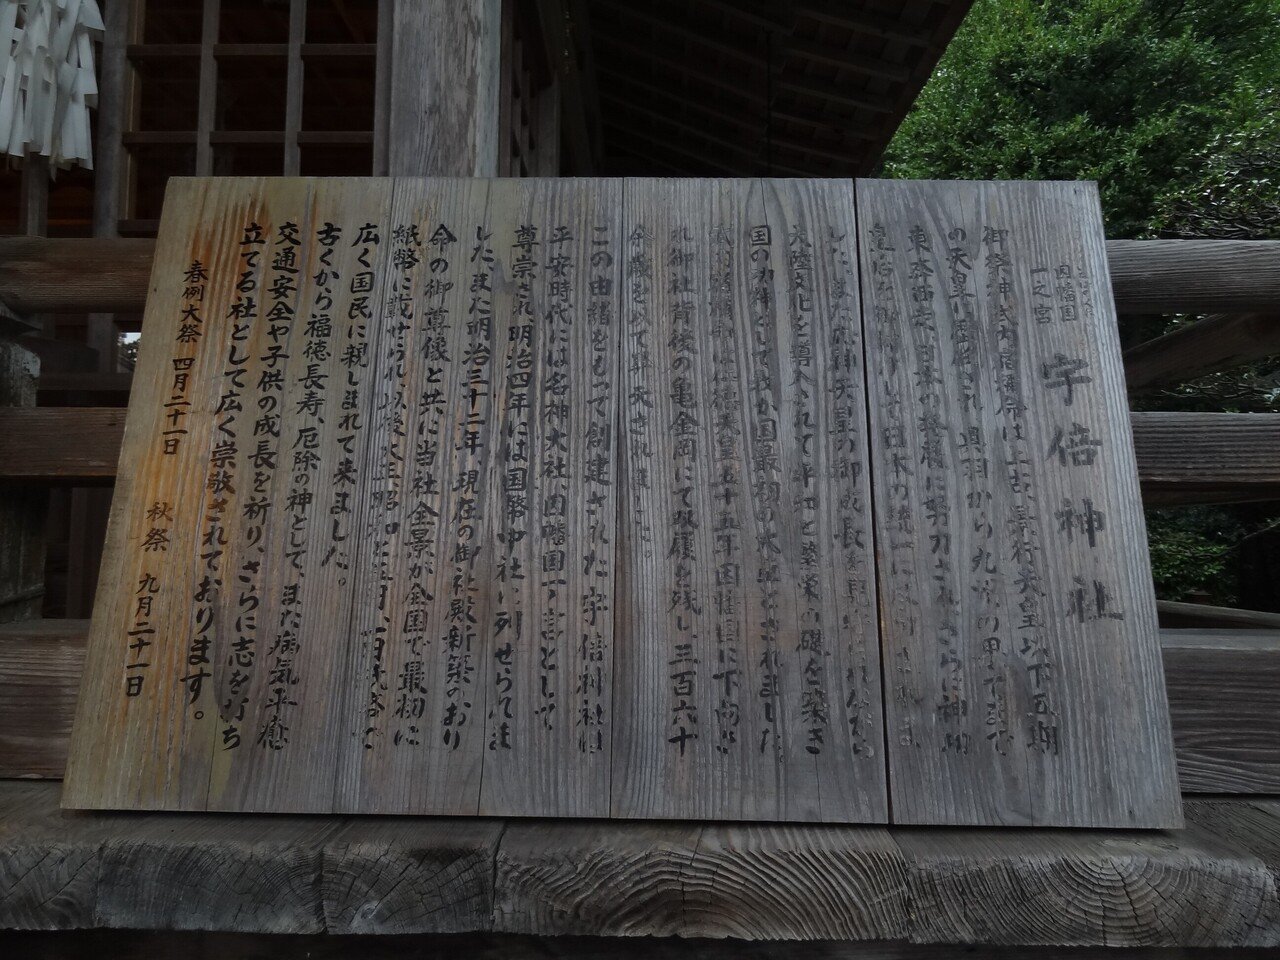 因幡国
一之宮
宇倍神社
御祭神武内宿禰命は上古、景行天皇以下五朝
の天皇に歴仕され 奥羽から九州の果てまで
東奔西走、日本の発展に努力されさらに神功
皇后を
したまた応神天皇の御成長を
大陸文化を導入されて平和と繁栄の礎を築き
国の功神として我が国最初の大臣とされました。
武内宿禰命は仁徳天皇五十五年因幡国に下向さ
れ御社背後の亀金岡にて双履を残し、三百六十
余歳をもって昇天されました。
この由緒をもって創建された宇倍神社は
平安時代には名神大社、因幡国一宮として
尊崇され、明治四年には国幣中社に列せられま
したまた明治三十二年、現在の御社殿新築のおり
命の御尊像と共に当社全景が全国で最初に
紙幣に載せられ、以後大正昭和と五円、一円紙幣で
広く国民に親しまれて来ました。
古くから福徳長寿、厄除の神として、また病気平癒
交通安全や子供の成長を祈り、さらに志を打ち
立てる社として広く崇敬されております。
春例大祭 四月二十一日 秋祭 九月二十一日